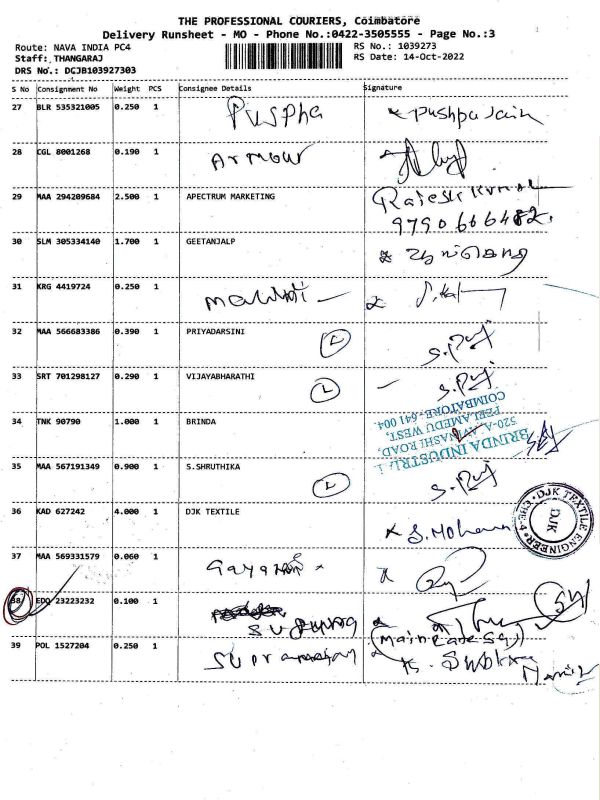 THE PROFESSIONAL COURIERS, Coimbatore
Delivery Runsheet - MO - Phone No.:0422-3505555 - Page No.:3
Route: NAVA INDIA PC4 RS No.: 1039273
Staff: THANGARAJ RS Date: 14-Oct-2022
DRS No.: DCJB103927303
S No Consignment No Weight PCS Consignee Details Signature
27 BLR 535321005 0.250 1 Puspha Pushpa Jain
28 CGL 8001268 0.190 1 Armour
29 MAA 294209684 2.500 1 APECTRUM MARKETING Rajesh Kumar
9790666482
30 SLM 305334140 1.700 1 GEETANJALP
31 KRG 4419724 0.250 1
32 MAA 566683386 0.390 1 PRIYADARSINI L
33 SRT 701298127 0.290 1 VIJAYABHARATHI L
34 TNK 90790 1.000 1 BRINDA
BRINDA INDUSTRIA
320-A, AVINASHI ROAD,
PEELAMEDU WEST,
COIMBATORE - 641 004.
35 MAA 567191349 0.900 1 S.SHRUTHIKA L
36 KAD 627242 4.000 1 DJK TEXTILE S. Mohana
DJK TEXTILE ENGINEER
DJK
37 MAA 569331579 0.060 1
38 EDQ 23223232 0.100 1
39 POL 1527204 0.250 1